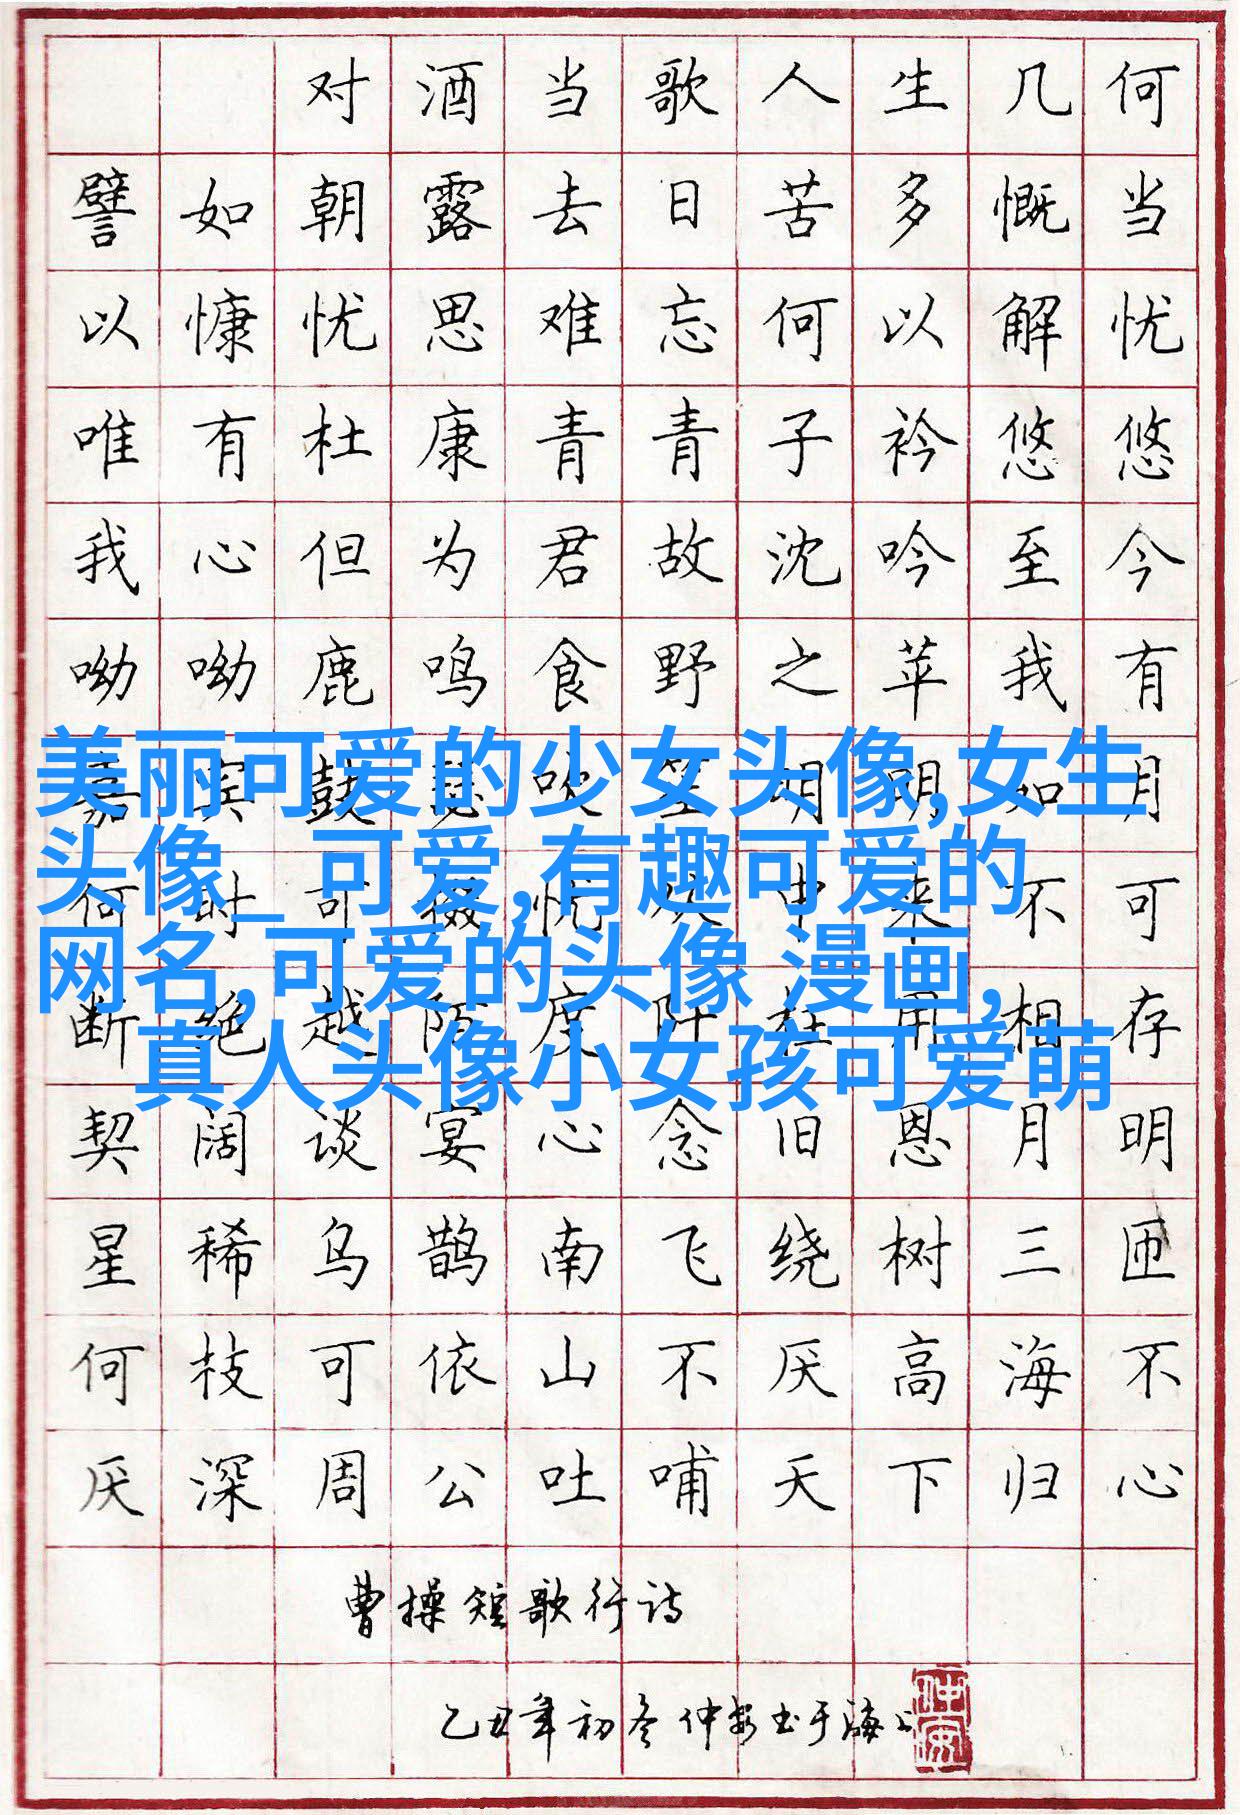 对酒当歌人生几何
譬如朝露去日苦多慨当
以慷忧思难忘何以解忧
唯有杜康青青子衿悠悠
我心但为君故沈吟至今
呦呦鹿鸣食野之苹我有
嘉宾鼓瑟吹笙明明如月
美丽可爱的少女头像,女生
头像_ 可爱,有趣可爱的
何时可掇忧从中来不可
网名,可爱的头像 漫画,
断绝越陌度阡枉用相存
真人头像小女孩可爱萌
契阔谈宴心念旧恩月明
星稀乌鹊南飞绕树三匝
何枝可依山不厌高海不
厌深周公吐哺天下归心
曹操短歌行诗
乙丑年初冬仲安书于海上
仲安